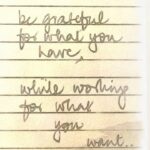 be grateful
for what you
have,
while working
for what
you
want..